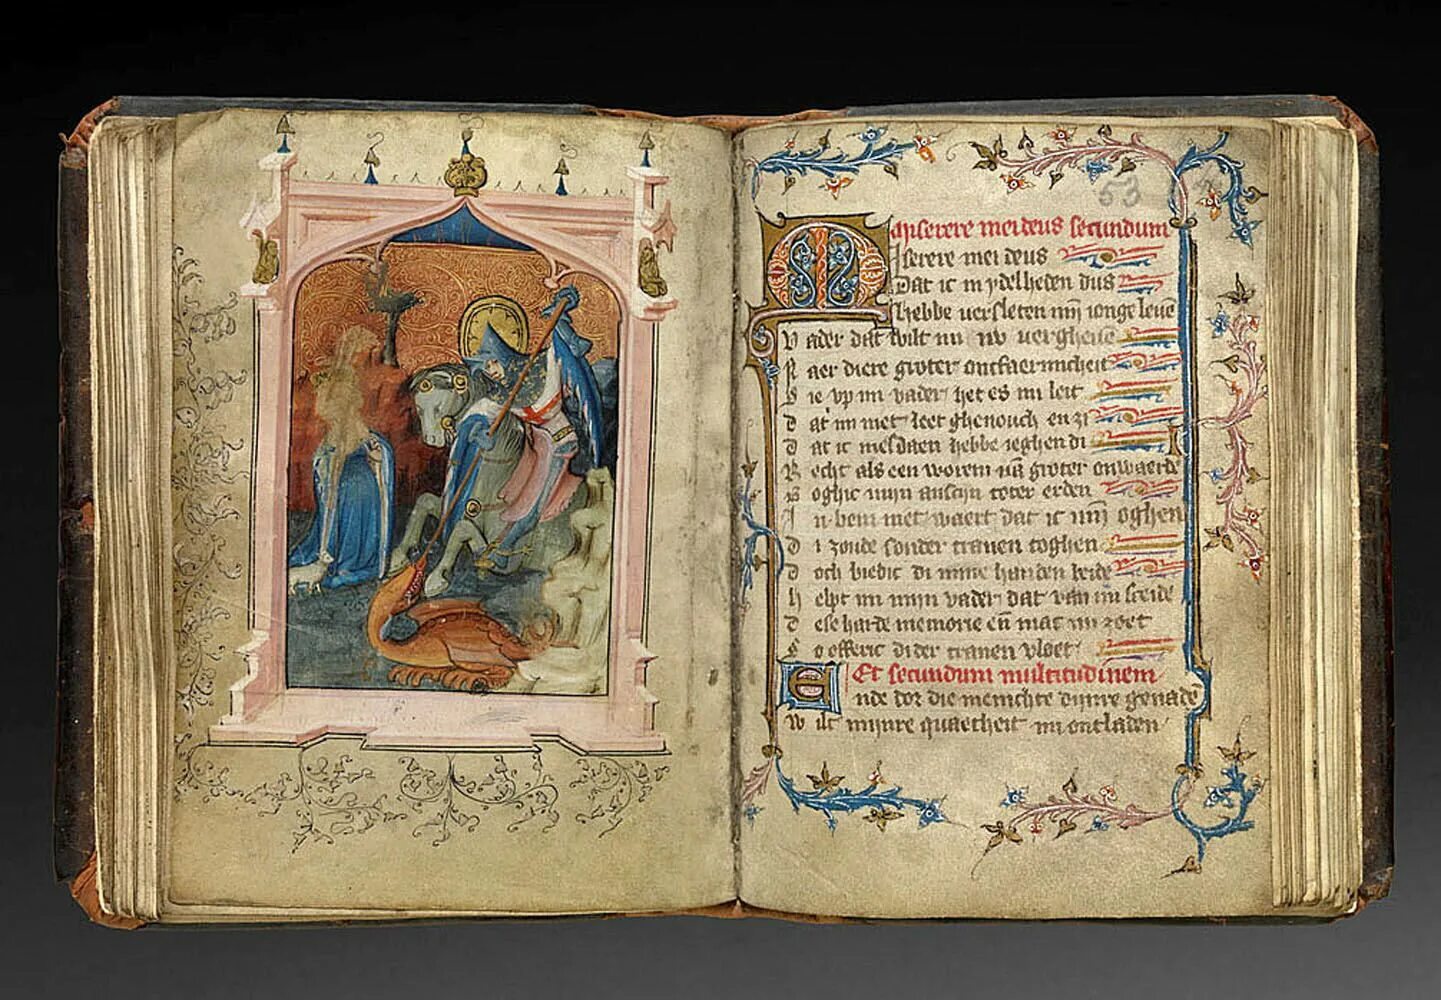 53
Miserere mei deus secundum
iserere mei deus
Dat ic in ydelheden dus
hebbe versleten mijn ionge leuen
vader dat wilt mi nv vergheuen
Naer diere groter ontfaermicheit
Sie vp mi vader het es mi leit
dat mi met leet ghenouch en zi
dat ic mesdaen hebbe ieghen di
Recht als een worem uan groter onwaerde
Boghic mijn anscijn toter erden
In bem niet waert dat ic mijn oghen
di zoude sonder tranen toghen
doch biedic di mine handen beide
helpt mi mijn vader dat van mi sceide
dese harde memorie en mac mi zoet
So offeric di der tranen vloet
Et secundum multitudinem
nde dor die menichte dijnre genade
wilt mijnre quaetheit mi ontladen